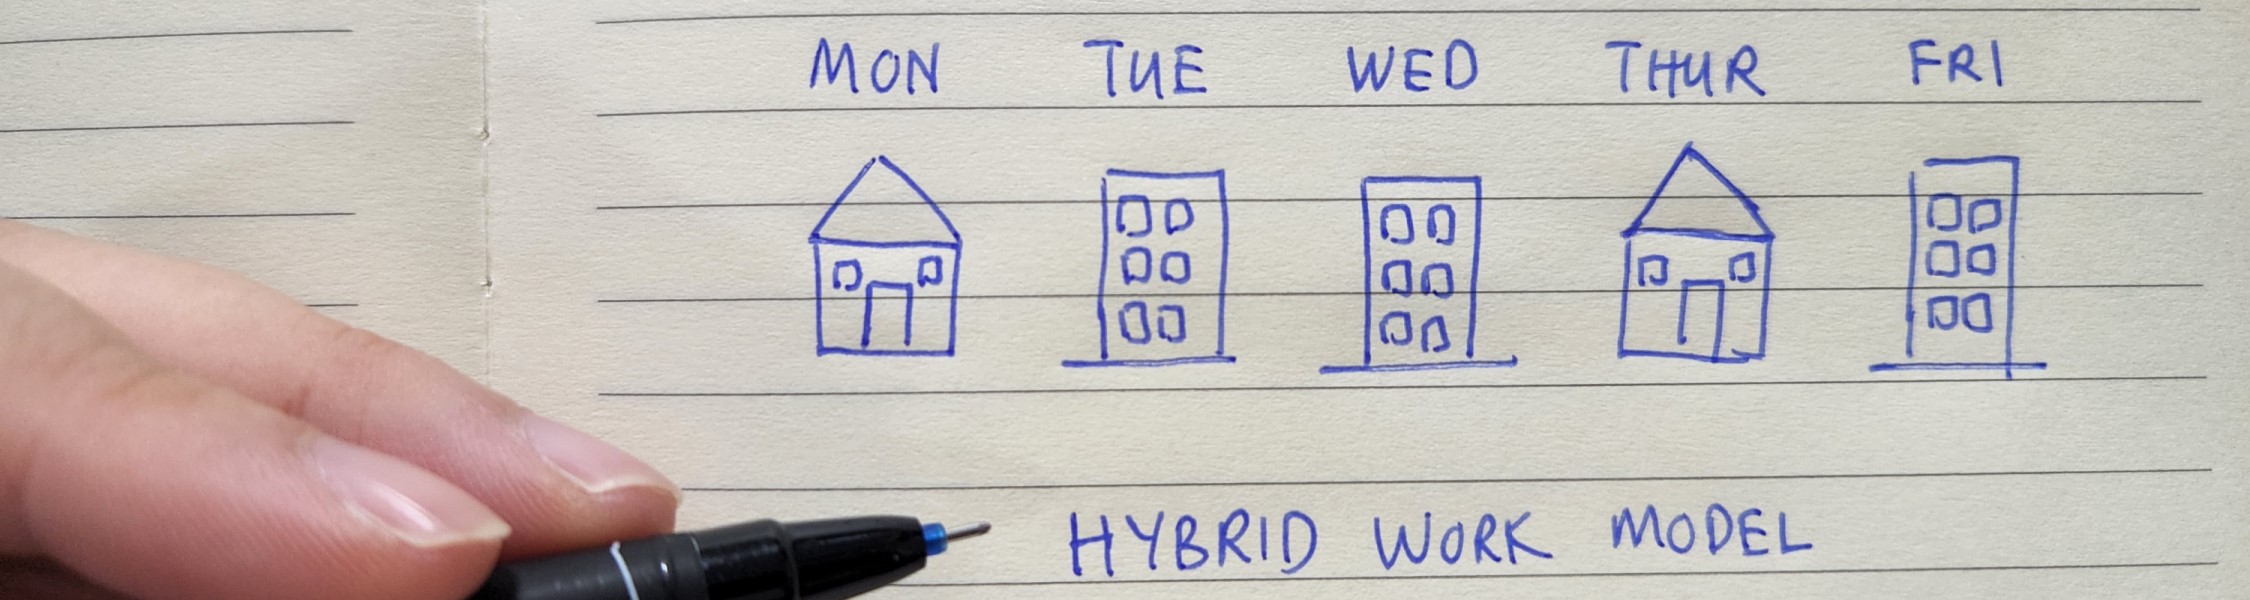 MON TUE WED THUR FRI
HYBRID WORK MODEL